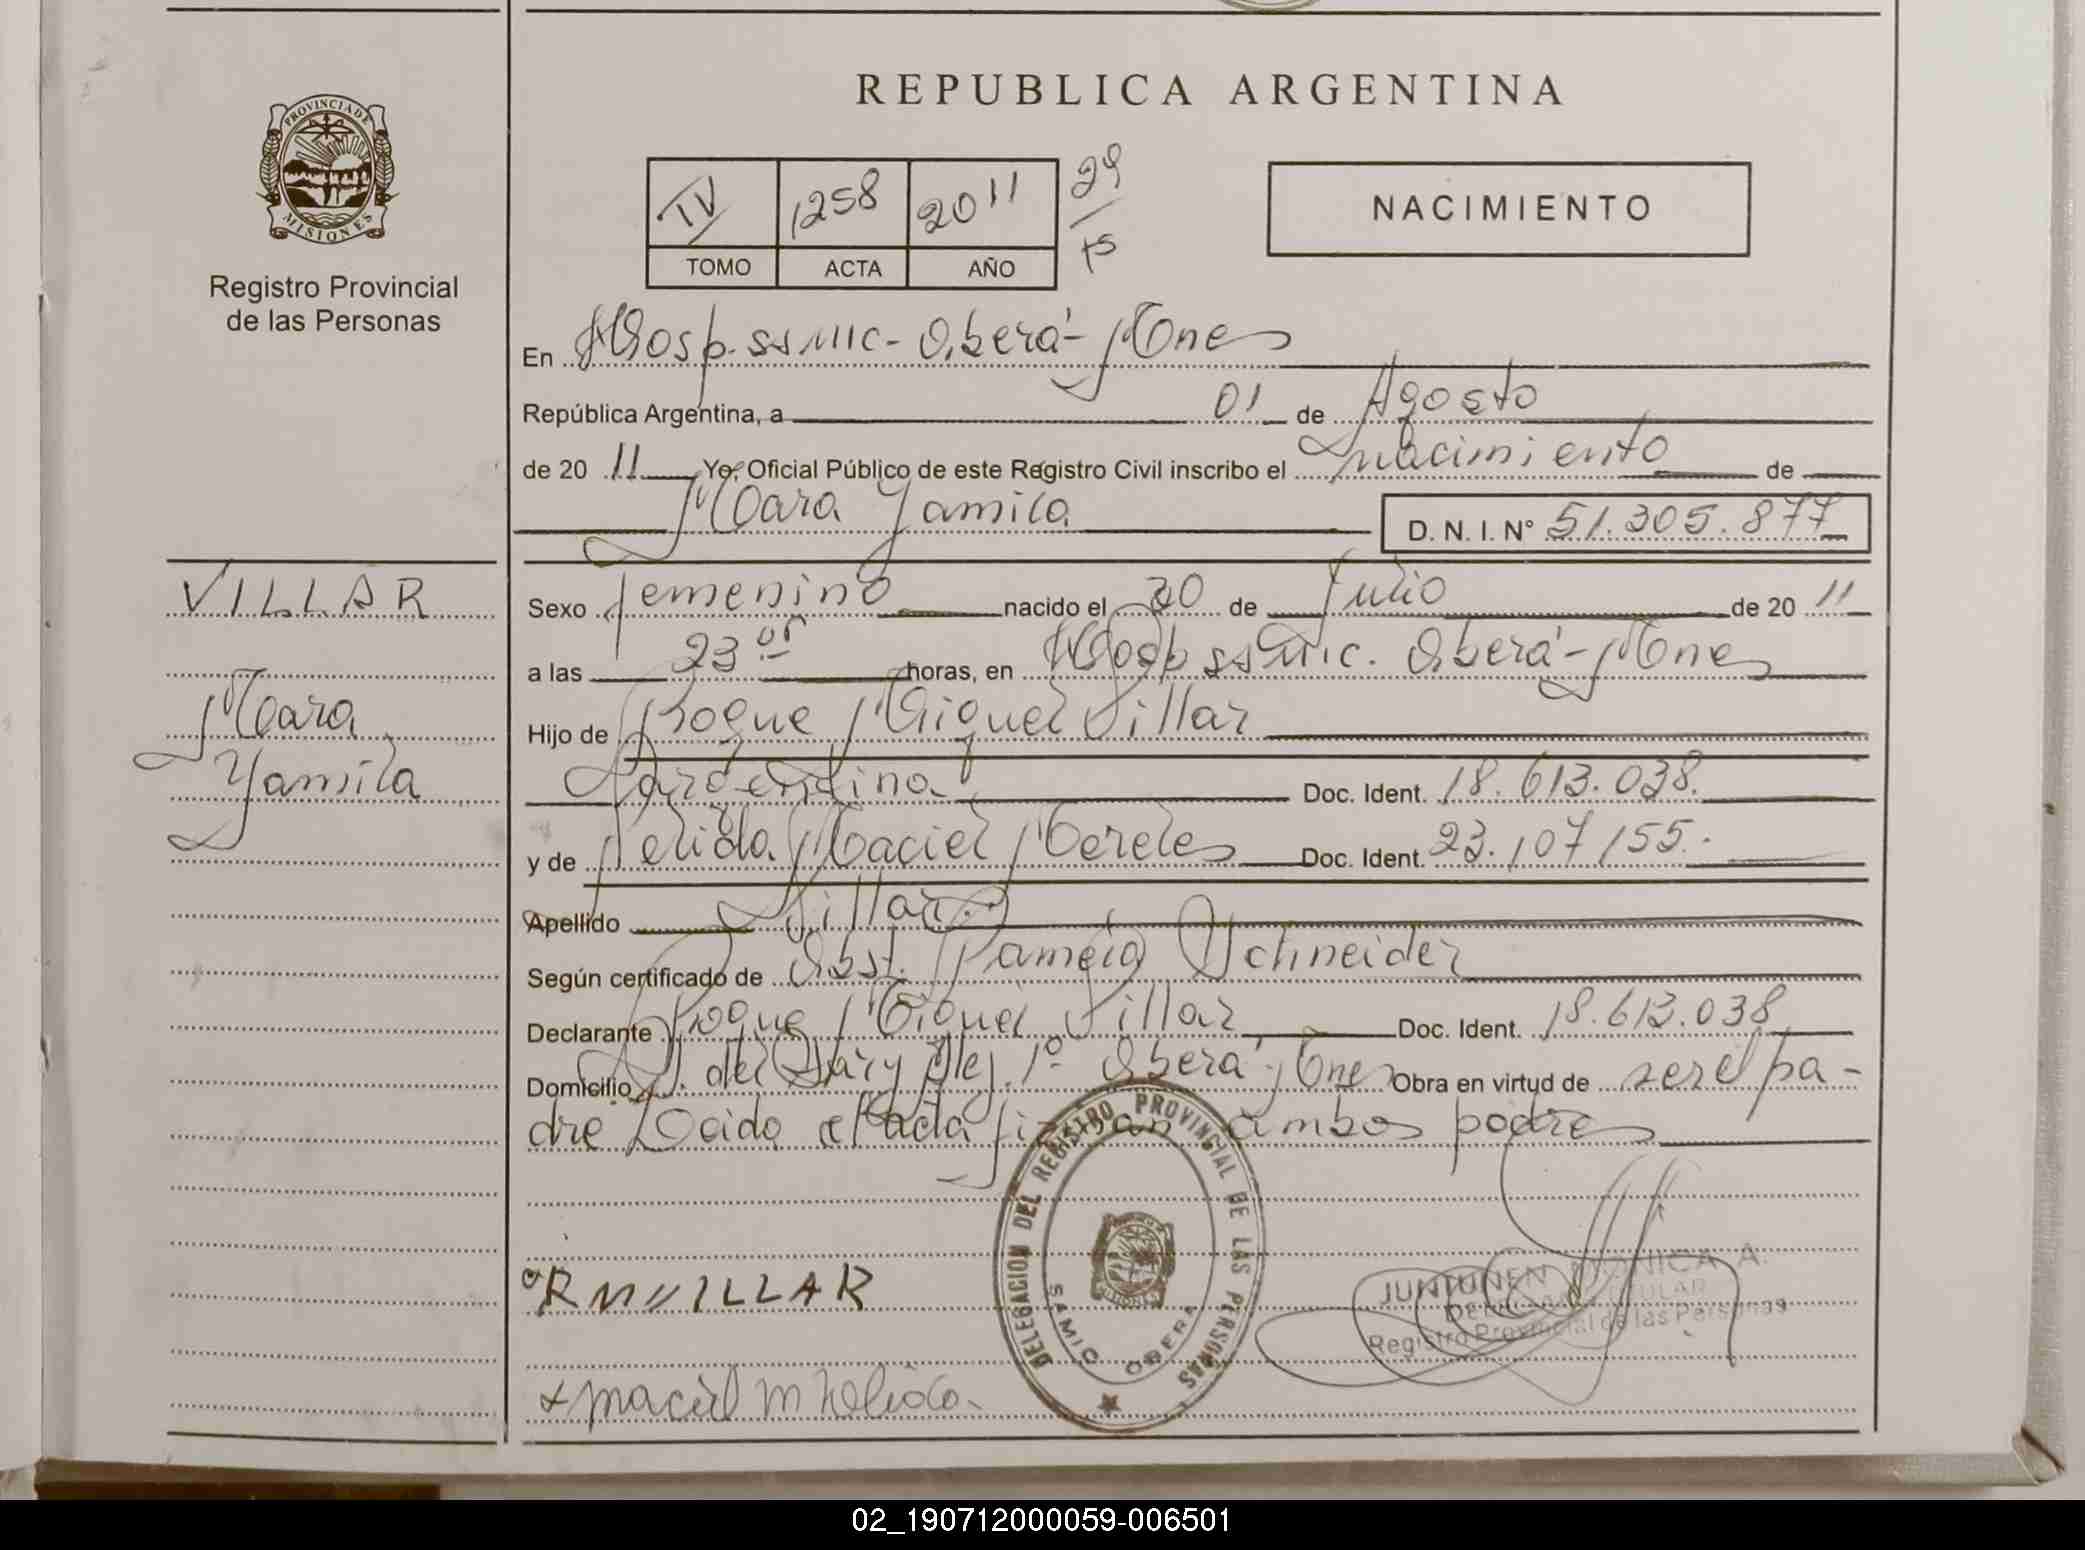 REPUBLICA ARGENTINA
PROVINCIA DE
MISIONES
Registro Provincial
de las Personas
IV 1258 2011 29
TOMO ACTA AÑO 15
NACIMIENTO
En Hosp. SSMIC - Oberá - Mnes
República Argentina, a 01 de Agosto
de 2011 Yo, Oficial Público de este Registro Civil inscribo el nacimiento de
Mara Yamila D. N. I. N° 51.305.877
VILLAR
Mara
Yamila
Sexo femenino nacido el 30 de Julio de 2011
a las 23 horas, en Hosp SSMIC. Oberá - Mnes
Hijo de Roque Miguel Villar
Argentina Doc. Ident. 18.613.038.
y de Nelida Maciel Mereles Doc. Ident. 23.107155.
Apellido Villar.
Según certificado de Obst. Pamela Schneider
Declarante Roque Miguel Villar Doc. Ident. 18.613.038
Domicilio del 1º Oberá - Mnes Obra en virtud de ser el pa-
dre Leida el acta firman ambos padres
RMVILLAR
DELEGACION DEL REGISTRO PROVINCIAL DE LAS PERSONAS
SAMIC OBERA
JUNTUNEN MONICA A.
DELEGADA TITULAR
Registro Provincial de las Personas
maciel m Nelida
02_190712000059-006501